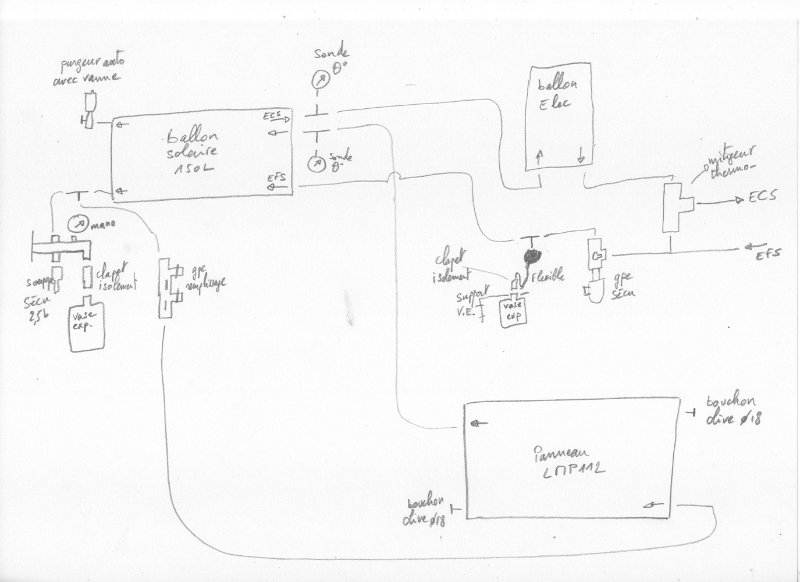 purgeur auto
avec vanne
sonde
θ°
ballon
Elec
ECS
ballon
solaire
150L
EFS
sonde
θ°
mitigeur
thermo-
ECS
EFS
mano
clapet
isolement
soupape
Sécu
2,5b
vase
exp.
gpe
remplissage
clapet
isolement
flexible
support
V.E.
vase
exp
gpe
Sécu
bouchon
olive ø18
Panneau
LMP112
bouchon
olive ø18